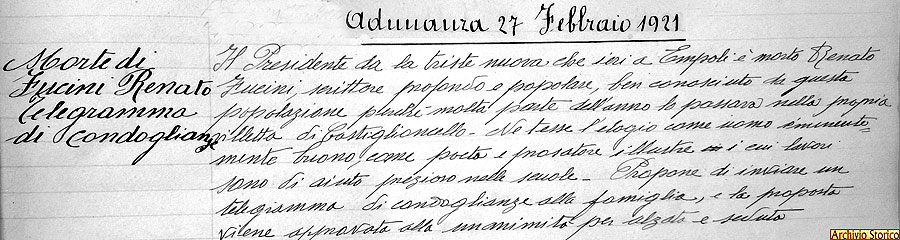 Adunanza 27 Febbraio 1921
Morte di
Fucini Renato
telegramma
di Condoglianze
Il Presidente da la triste nuova che ieri a Empoli è morto Renato
Fucini, scrittore profondo e popolare, ben conosciuto da questa
popolazione perchè molta parte dell'anno lo passava nella propria
villetta di Castiglioncello. Ne tesse l'elogio come uomo eminente-
mente buono come poeta e prosatore illustre i cui lavori
sono di aiuto prezioso nelle scuole. Propone di inviare un
telegramma di condoglianze alla famiglia, e la proposta
viene approvata alla unanimità per alzata e seduta
Archivio Storico